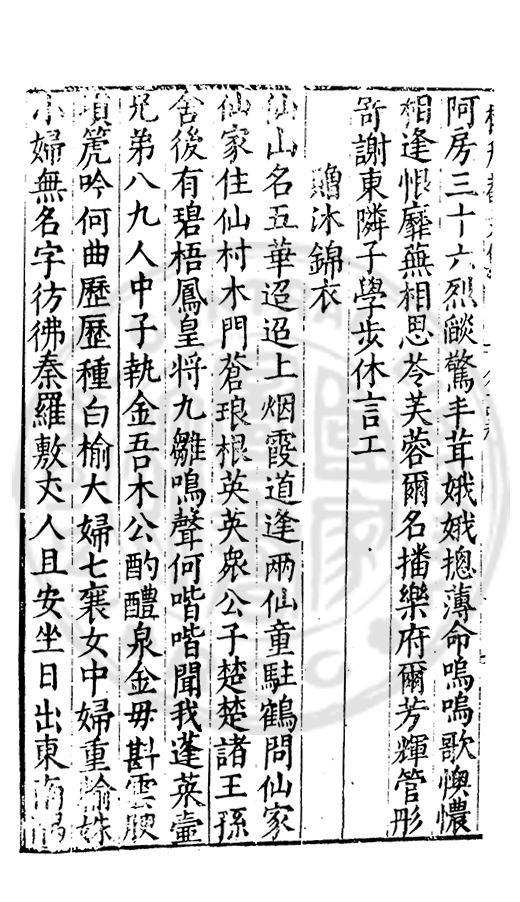 阿房三十六烈燄驚丰茸娥娥摠薄命嗚嗚歌懊儂
相逢恨靡蕪相思苓芙蓉爾名播樂府爾芳輝管彤
寄謝東隣子學步休言工
贈沐錦衣
仙山名五華迢迢上烟霞道逢兩仙童駐鶴問仙家
仙家住仙村木門蒼琅根英英衆公子楚楚諸王孫
舍後有碧梧鳳皇将九雛鳴聲何喈喈聞我蓬萊壷
兄弟八九人中子執金吾木公酌醴泉金母斟雲腴
塤箎吟何曲歷歷種白榆大婦七襄女中婦重輪姝
小婦無名字彷彿秦羅敷丈人且安坐日出東南隅